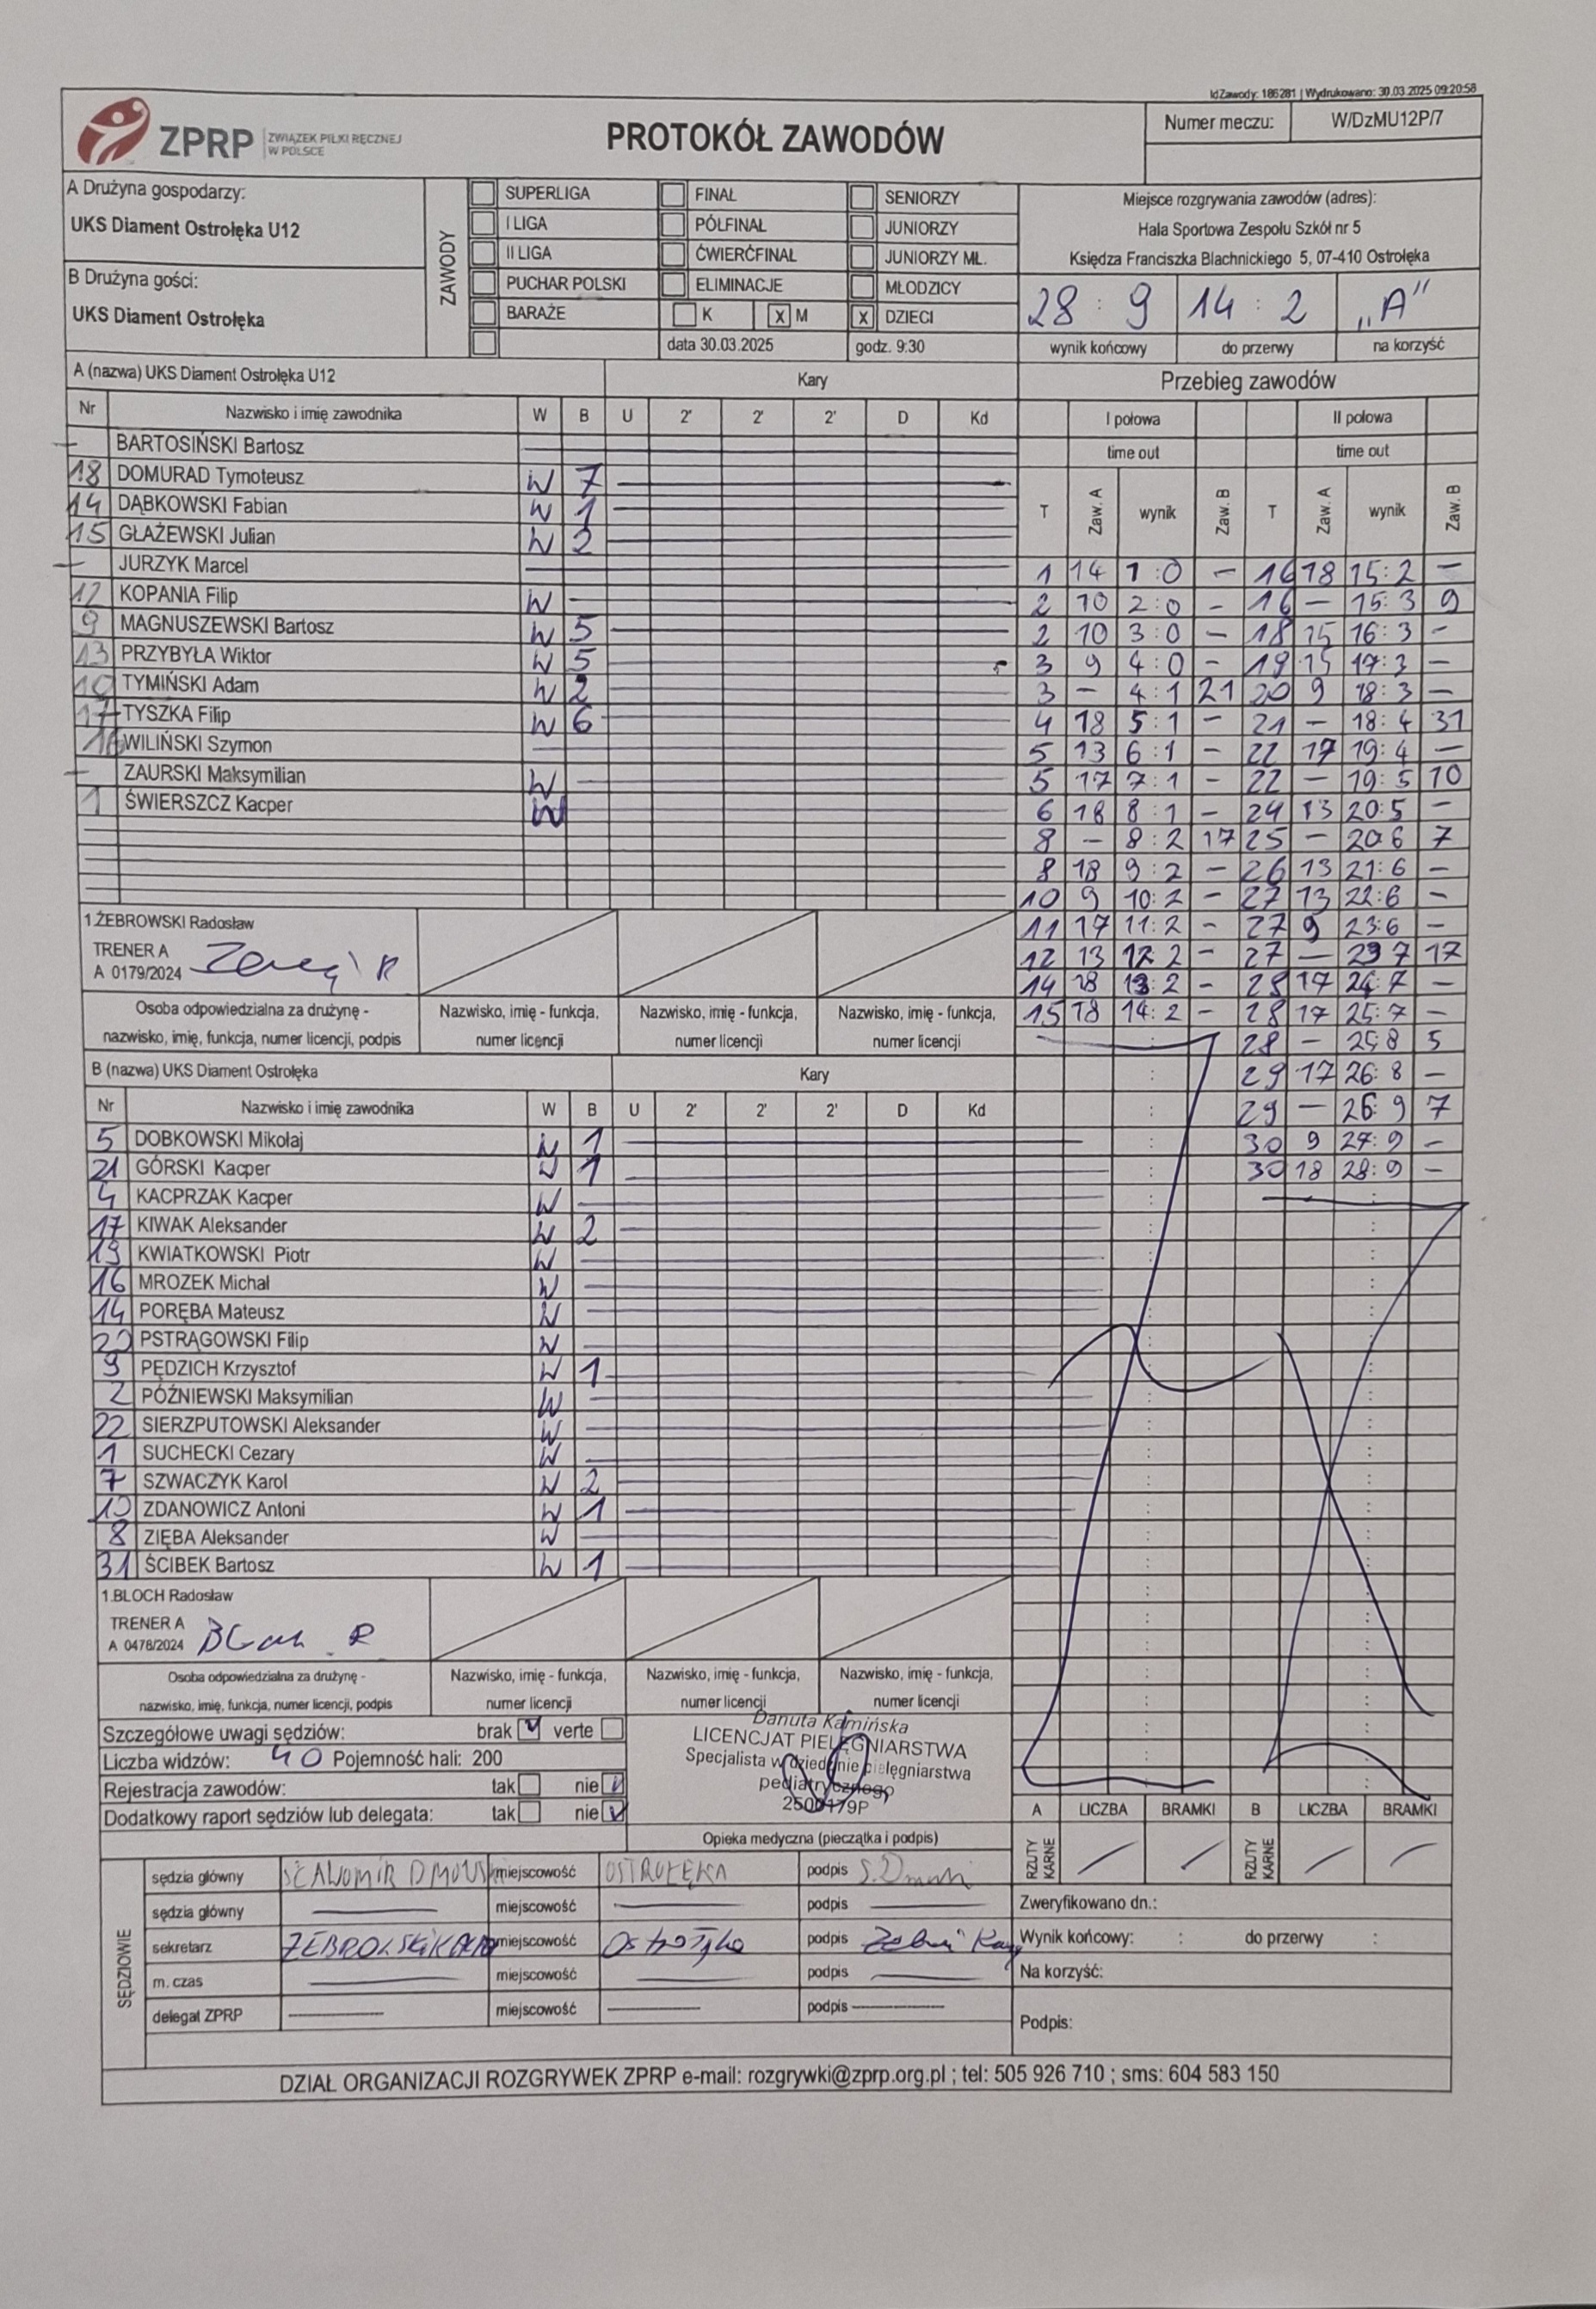 IdZawody: 186281 | Wydrukowano: 30.03.2025 09:20:58
ZPRP ZWIĄZEK PIŁKI RĘCZNEJ W POLSCE
PROTOKÓŁ ZAWODÓW
Numer meczu: W/DzMU12P/7
A Drużyna gospodarzy:
UKS Diament Ostrołęka U12
B Drużyna gości:
UKS Diament Ostrołęka
ZAWODY
SUPERLIGA FINAŁ SENIORZY
I LIGA PÓŁFINAŁ JUNIORZY
II LIGA ĆWIERĆFINAŁ JUNIORZY MŁ.
PUCHAR POLSKI ELIMINACJE MŁODZICY
BARAŻE K X M X DZIECI
data 30.03.2025 godz. 9:30
Miejsce rozgrywania zawodów (adres):
Hala Sportowa Zespołu Szkół nr 5
Księdza Franciszka Blachnickiego 5, 07-410 Ostrołęka
28 : 9 14 : 2 „A"
wynik końcowy do przerwy na korzyść
A (nazwa) UKS Diament Ostrołęka U12 Kary
Nr Nazwisko i imię zawodnika W B U 2' 2' 2' D Kd
— BARTOSIŃSKI Bartosz
18 DOMURAD Tymoteusz W 7
14 DĄBKOWSKI Fabian W 1
15 GŁAŻEWSKI Julian W 2
— JURZYK Marcel
12 KOPANIA Filip W —
9 MAGNUSZEWSKI Bartosz W 5
13 PRZYBYŁA Wiktor W 5
10 TYMIŃSKI Adam W 2
17 TYSZKA Filip W 6
16 WILIŃSKI Szymon
— ZAURSKI Maksymilian W
1 ŚWIERSZCZ Kacper W
1.ŻEBROWSKI Radosław
TRENER A
A 0179/2024
Osoba odpowiedzialna za drużynę -
nazwisko, imię, funkcja, numer licencji, podpis
Nazwisko, imię - funkcja, numer licencji
Nazwisko, imię - funkcja, numer licencji
Nazwisko, imię - funkcja, numer licencji
B (nazwa) UKS Diament Ostrołęka Kary
Nr Nazwisko i imię zawodnika W B U 2' 2' 2' D Kd
5 DOBKOWSKI Mikołaj W 1
21 GÓRSKI Kacper W 1
4 KACPRZAK Kacper W
17 KIWAK Aleksander W 2
19 KWIATKOWSKI Piotr W
16 MROZEK Michał W
14 PORĘBA Mateusz W
20 PSTRĄGOWSKI Filip W
9 PĘDZICH Krzysztof W 1
2 PÓŹNIEWSKI Maksymilian W
22 SIERZPUTOWSKI Aleksander W
1 SUCHECKI Cezary W
7 SZWACZYK Karol W 2
10 ZDANOWICZ Antoni W 1
8 ZIĘBA Aleksander W
31 ŚCIBEK Bartosz W 1
1.BLOCH Radosław
TRENER A
A 0478/2024 Bloch R
Osoba odpowiedzialna za drużynę -
nazwisko, imię, funkcja, numer licencji, podpis
Nazwisko, imię - funkcja, numer licencji
Nazwisko, imię - funkcja, numer licencji
Nazwisko, imię - funkcja, numer licencji
Przebieg zawodów
I połowa II połowa
time out time out
T Zaw. A wynik Zaw. B T Zaw. A wynik Zaw. B
1 14 1:0 – 16 18 15:2 –
2 10 2:0 – 16 – 15:3 9
2 10 3:0 – 18 15 16:3 –
3 9 4:0 – 19 15 17:3 –
3 – 4:1 21 20 9 18:3 –
4 18 5:1 – 21 – 18:4 31
5 13 6:1 – 22 17 19:4 –
5 17 7:1 – 22 – 19:5 10
6 18 8:1 – 24 13 20:5 –
8 – 8:2 17 25 – 20:6 7
8 18 9:2 – 26 13 21:6 –
10 9 10:2 – 27 13 22:6 –
11 17 11:2 – 27 9 23:6 –
12 13 12:2 – 27 – 23 7 17
14 18 13:2 – 28 17 24:7 –
15 18 14:2 – 28 17 25:7 –
28 – 25:8 5
29 17 26:8 –
29 – 26:9 7
30 9 27:9 –
30 18 28:9 –
Szczegółowe uwagi sędziów: brak verte
Liczba widzów: 40 Pojemność hali: 200
Rejestracja zawodów: tak nie
Dodatkowy raport sędziów lub delegata: tak nie
Danuta Kamińska
LICENCJAT PIELĘGNIARSTWA
Specjalista w dziedzinie pielęgniarstwa
pediatrycznego
2500179P
Opieka medyczna (pieczątka i podpis)
A LICZBA BRAMKI B LICZBA BRAMKI
RZUTY KARNE RZUTY KARNE
SĘDZIOWIE
sędzia główny miejscowość OSTROŁĘKA podpis
sędzia główny miejscowość podpis
sekretarz miejscowość Ostrołęka podpis
m. czas miejscowość podpis
delegat ZPRP miejscowość podpis
Zweryfikowano dn.:
Wynik końcowy: : do przerwy :
Na korzyść:
Podpis:
DZIAŁ ORGANIZACJI ROZGRYWEK ZPRP e-mail: rozgrywki@zprp.org.pl ; tel: 505 926 710 ; sms: 604 583 150